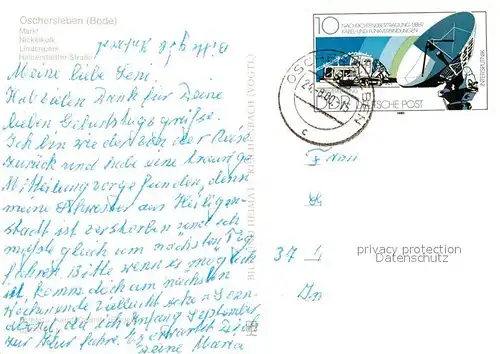 Oschersleben (Bode)
Markt
Nickelkulk
Lindenpark
Halberstädter Straße
Bitte gib Antwort
Meine liebe Leni!
Hab vielen Dank für Deine
lieben Geburtstagsgrüße.
Ich bin wieder von der Reise
zurück und habe eine traurige
Mitteilung vorgefunden, denn
meine Schwester aus Heiligen-
stadt ist verstorben und ich
mußte gleich am nächsten Tag
fahren. Bitte wenn es möglich
ist, komm doch am nächsten
Wochenende vielleicht schon
da ich Anfang September
zur Kur fahre. Es
Deine Maria
BILD UND HEIMAT REICHENBACH (VOGTL)
10
NACHRICHTENÜBERTRAGUNG ÜBER
KABEL- UND FUNKVERBINDUNGEN
INTERSPUTNIK
DEUTSCHE POST
OSCHERSLEBEN
c
Frau
37
privacy protection
Datenschutz